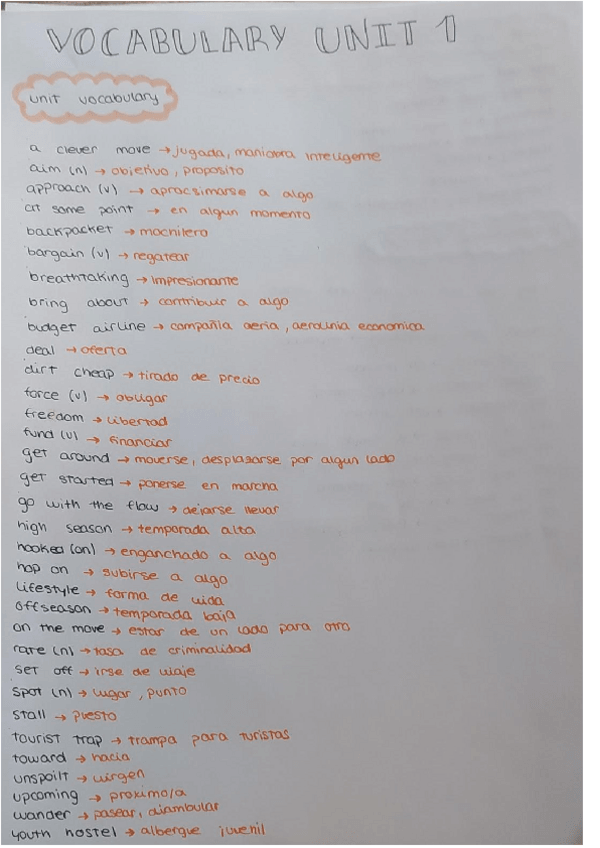 VOCABULARY UNIT 1
unit vocabulary
a clever move → jugada, maniobra inteligente
aim (n) → objetivo, proposito
approach (v) → aprocsimarse a algo
at some point → en algun momento
backpacket → mochilero
bargain (v) → regatear
breathtaking → impresionante
bring about → contribuir a algo
budget airline → compañia aeria, aerolinia economica
deal → oferta
dirt cheap → tirado de precio
force (v) → obligar
freedom → libertad
fund (v) → financiar
get around → moverse, desplasarse por algun lado
get started → ponerse en marcha
go with the flow → dejarse llevar
high season → temporada alta
hooked (on) → enganchado a algo
hop on → subirse a algo
lifestyle → forma de vida
offseason → temporada baja
on the move → estar de un lado para otro
rate (n) → tasa de criminalidad
set off → irse de viaje
spot (n) → lugar, punto
stall → puesto
tourist trap → trampa para turistas
toward → hacia
unspoilt → virgen
upcoming → proximo/a
wander → pasear, diambular
youth hostel → albergue juvenil